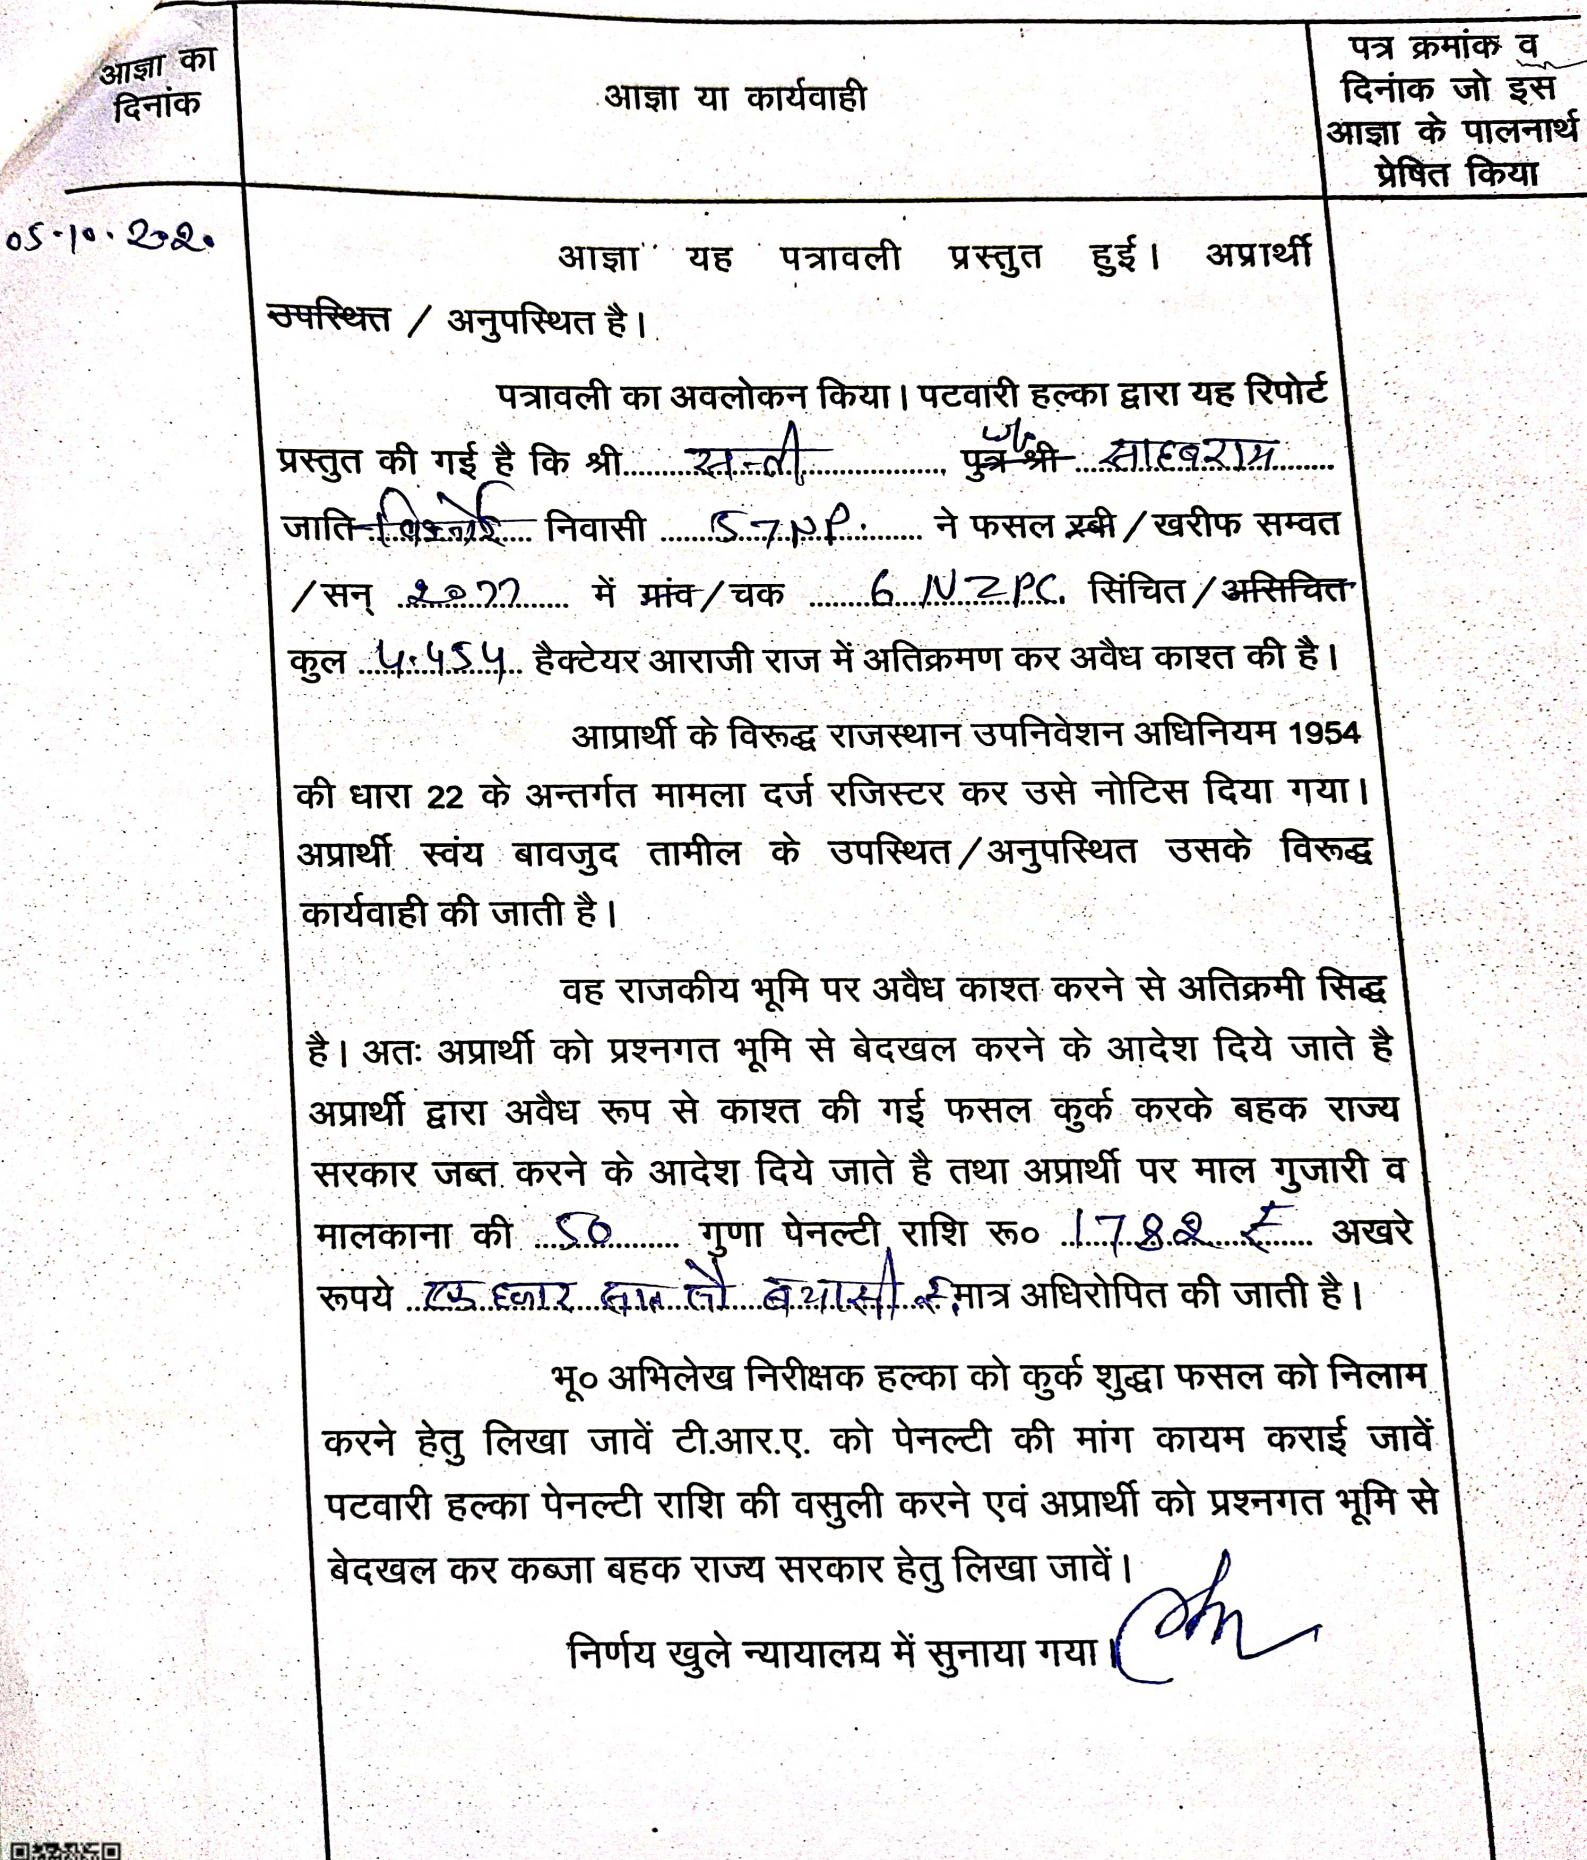 आज्ञा का
दिनांक
आज्ञा या कार्यवाही
पत्र क्रमांक व
दिनांक जो इस
आज्ञा के पालनार्थ
प्रेषित किया
05.10.2020
आज्ञा यह पत्रावली प्रस्तुत हुई। अप्रार्थी
उपस्थित / अनुपस्थित है।
पत्रावली का अवलोकन किया। पटवारी हल्का द्वारा यह रिपोर्ट
प्रस्तुत की गई है कि श्री सन्ती पुत्र श्री साहबराम
जाति विश्नोई निवासी 57NP. ने फसल रबी / खरीफ सम्वत
/ सन् 2077 में ग्रांव / चक 6 NZPC. सिंचित / असिचित
कुल 4.454 हैक्टेयर आराजी राज में अतिक्रमण कर अवैध काश्त की है।
आप्रार्थी के विरूद्ध राजस्थान उपनिवेशन अधिनियम 1954
की धारा 22 के अन्तर्गत मामला दर्ज रजिस्टर कर उसे नोटिस दिया गया।
अप्रार्थी स्वंय बावजुद तामील के उपस्थित / अनुपस्थित उसके विरूद्ध
कार्यवाही की जाती है।
वह राजकीय भूमि पर अवैध काश्त करने से अतिक्रमी सिद्ध
है। अतः अप्रार्थी को प्रश्नगत भूमि से बेदखल करने के आदेश दिये जाते है
अप्रार्थी द्वारा अवैध रूप से काश्त की गई फसल कुर्क करके बहक राज्य
सरकार जब्त करने के आदेश दिये जाते है तथा अप्रार्थी पर माल गुजारी व
मालकाना की 50 गुणा पेनल्टी राशि रू० 1782 अखरे
रूपये एक हजार सात सौ बयासी रू. मात्र अधिरोपित की जाती है।
भू० अभिलेख निरीक्षक हल्का को कुर्क शुद्धा फसल को निलाम
करने हेतु लिखा जावें टी.आर.ए. को पेनल्टी की मांग कायम कराई जावें
पटवारी हल्का पेनल्टी राशि की वसुली करने एवं अप्रार्थी को प्रश्नगत भूमि से
बेदखल कर कब्जा बहक राज्य सरकार हेतु लिखा जावें।
निर्णय खुले न्यायालय में सुनाया गया।